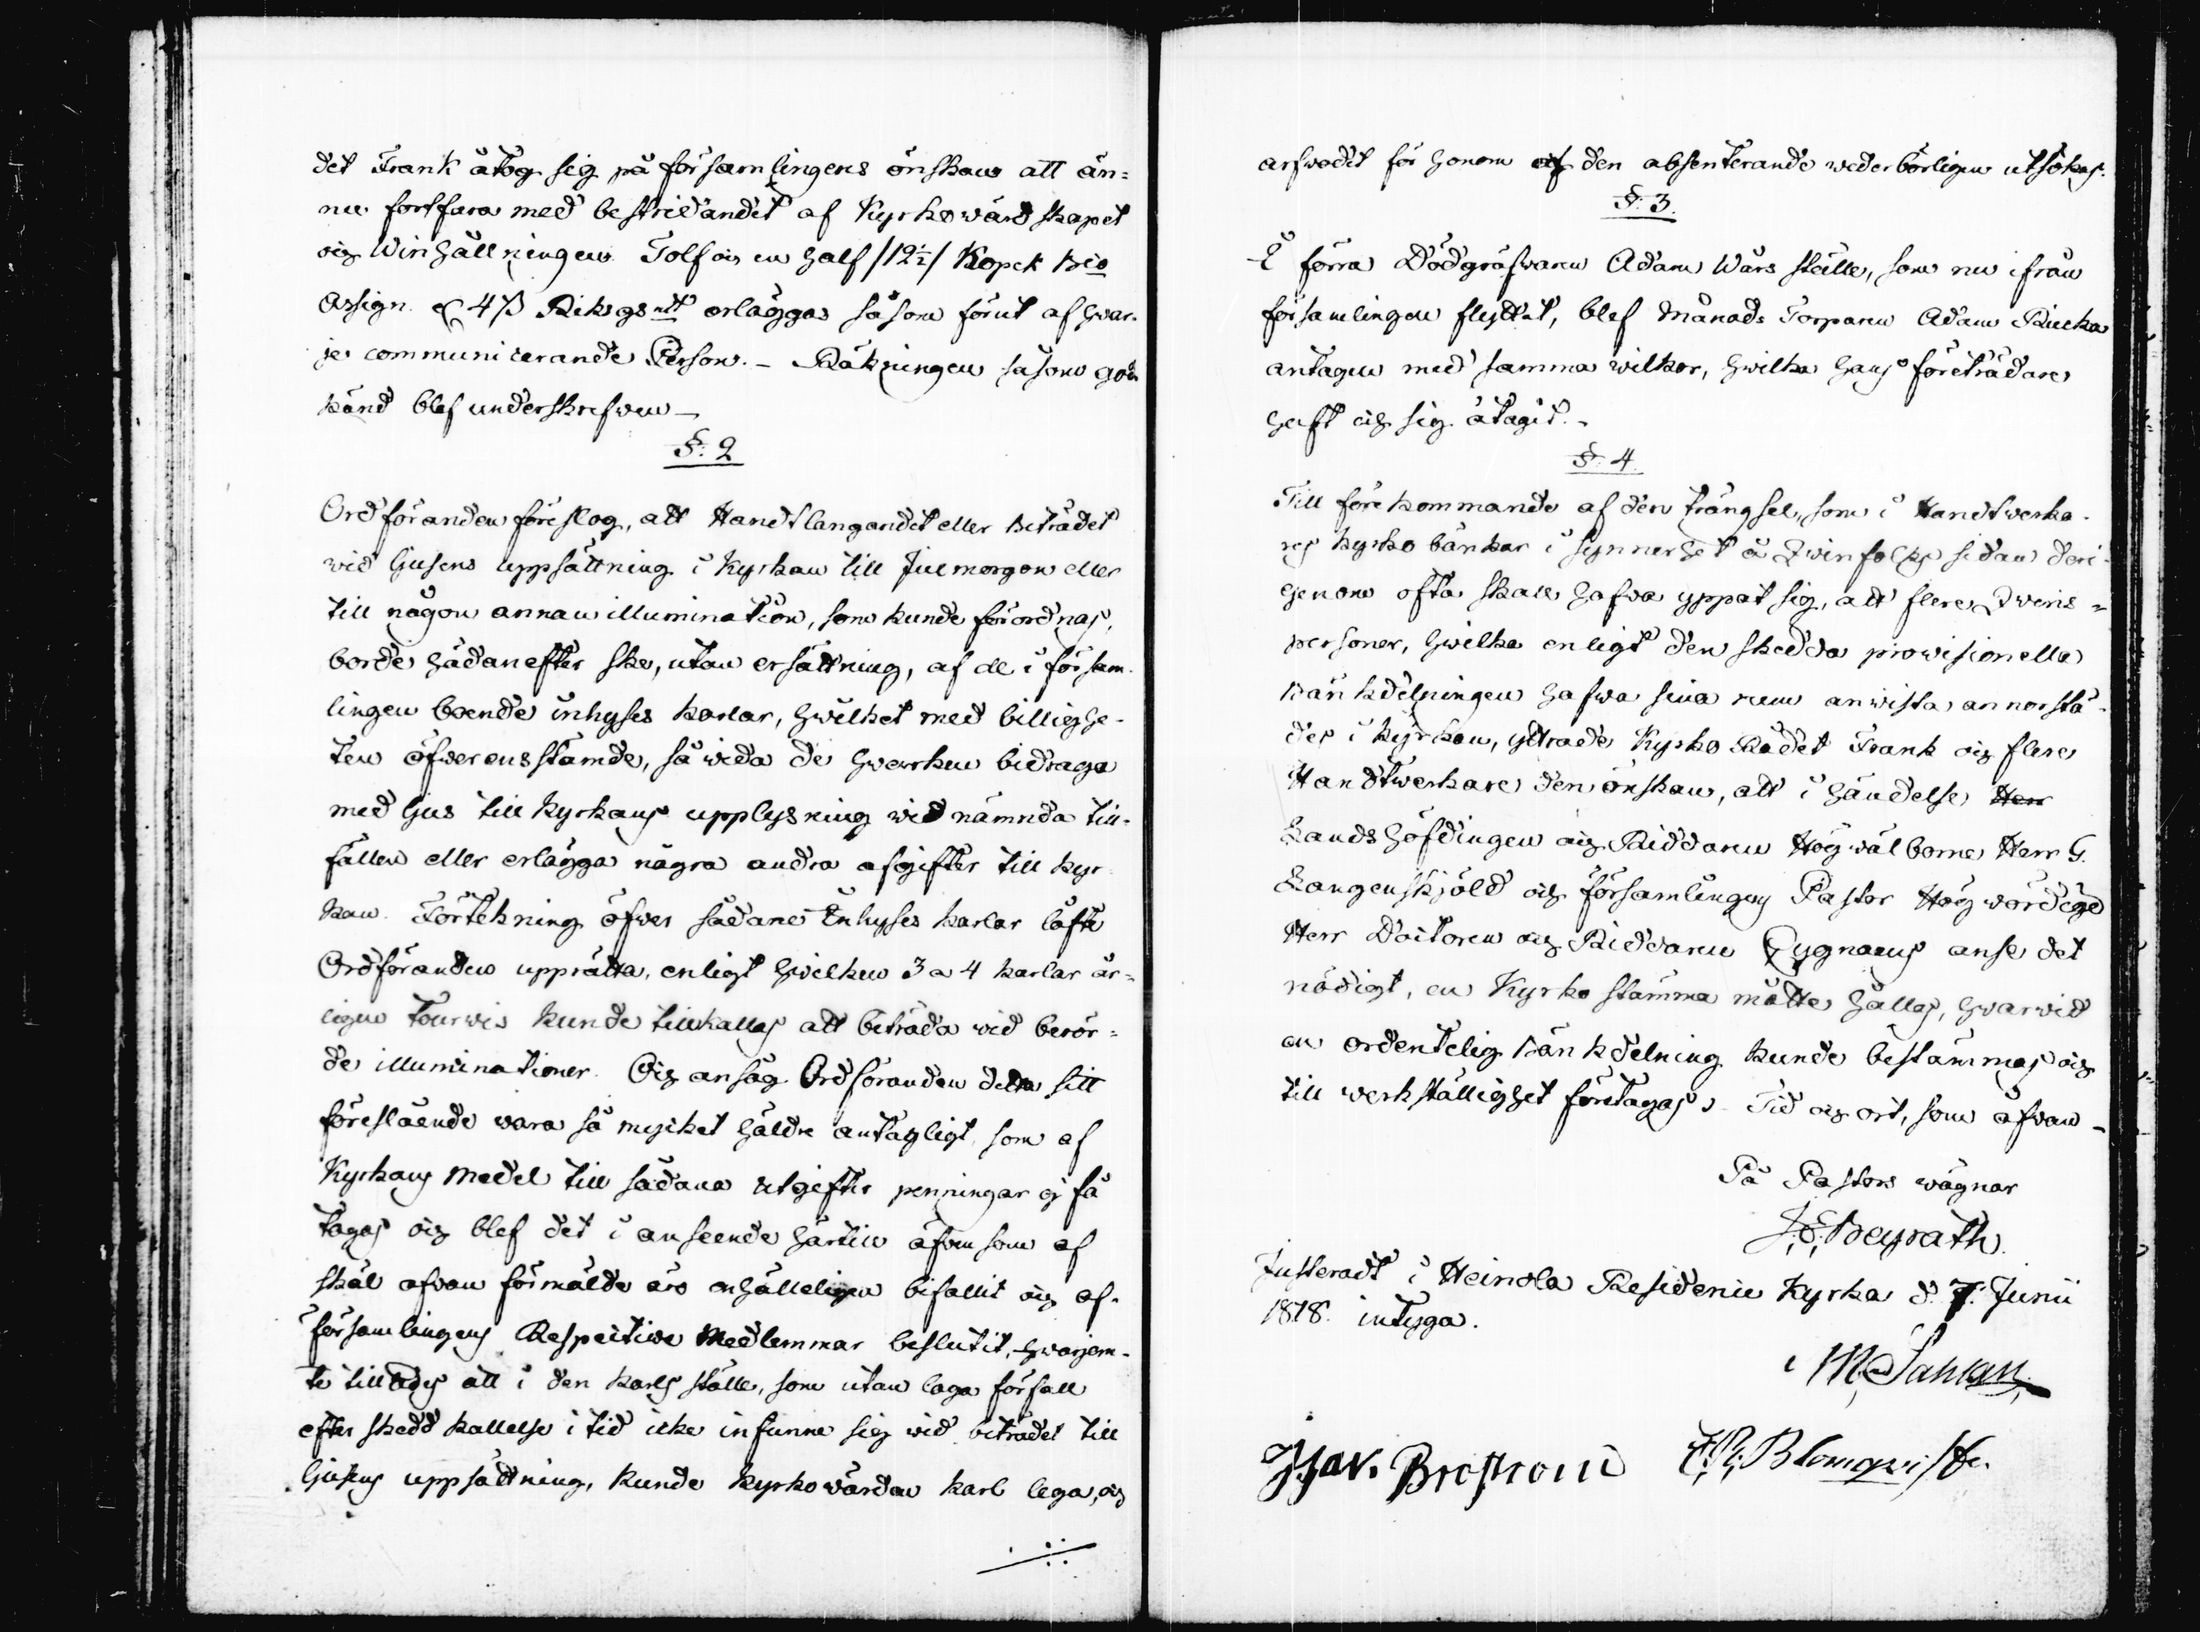 det Frank åtog sig på församlingens önskan att än=
nu fortfara med bestridandet af Kyrkowärdskapet
och Winhållningen. Tolf och en half /12½/ Kopek Bco
Assign. & 4 ß Riksgs mt erlägges såsom förut af hwar-
je communicerande Person. – Räkningen såsom god-
känd blef underskrefwen –
§: 2
Ordföranden föreslog, att Handtlangandet eller biträdet
wid ljusens uppsättning i Kyrkan till Julmorgon eller
till någon annan illumination, som kunde förordnas,
borde hädanefter ske, utan ersättning, af de i försam-
lingen boende inhyses karlar, hwilket med billighe-
ten öfwerensstämde, så wida de hwarken bidraga
med ljus till Kyrkans upplysning wid nämnda till-
fällen eller erlägga några andra afgifter till kyr-
kan. Förtekning öfwer sådane Inhyses karlar löfte
Ordföranden upprätta, enligt hwilken 3 a 4 karlar år=
ligen tourwis kunde tillkallas att biträda wid berör=
de illuminationer. Och ansåg Ordföranden detta sitt
föreslående wara så mycket häldre antagligt, som af
Kyrkans Medel till sådana utgifter penningar ej få
tagas och blef det i anseende härtill äfwen som af
skäl ofwan förmälde äro enhälleligen bifallit och af
församlingens Respective Medlemmar beslutit, hwarjem-
te tillades att i den karls ställe, som utan laga förfall
efter skedd kallelse i tid icke infunne sig wid biträdet till
ljusens uppsättning, kunde Kyrkowärden karl lega, och
arfwodet för honom af den absenterande wederbörligen utsökas.
§: 3.
I förra Dödgräfwaren Adam Wårs ställe, som nu ifrån
församlingen flyttat, blef Månads Torparen Adam Kucka
antagen med samma wilkor, hwilka hans företrädare
haft och sig åtagit. –
§: 4.
Till förekommande af den trängsel, som i Handtwerka-
res kyrko bänkar i synnerhet å Qwinfolks sidan deri-
genom ofta skall hafwa yppat sig, att flere Qwins=
personer, hwilka enligt den skedda prowisionella
Bänkdelningen hafwa sina rum anwista annorstä-
des i kyrkan, yttrade Kyrko Rådet Frank och flere
Handtwerkare den önskan, att i händelse Herr
Landshöfdingen och Riddaren Högwälborne Herr G.
Langenskjöld och församlingens Pastor Högwördige
Herr Doctoren och Riddaren Cygnaeus anse det
nödigt, en Kyrko stämma måtte hållas, hwarwid
en ordentelig Bänkdelning kunde bestämmas och
till werkställighet företagas. Tid och ort, som ofwan –
På Pastors wägnar
J. E. Beyrath.
Justeradt i Heinola Residence Kyrka d. 7. Junii
1818. intyga.
Blomqvist.